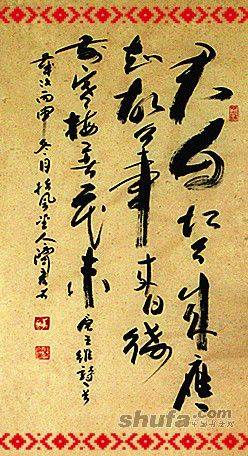 君自故鄉來應
知故鄉事來日綺
窗前寒梅著花未 唐王維詩
歲次丙申冬月
shufa.com
中国书法网